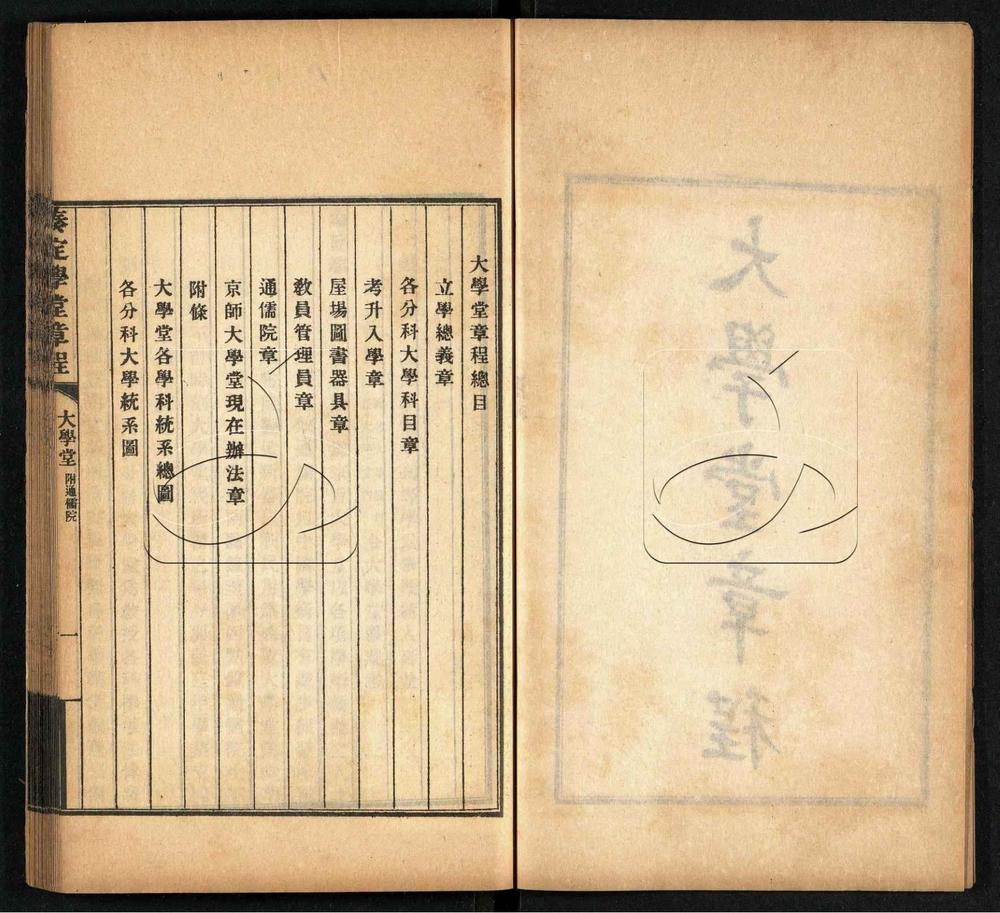 大學堂章程
大學堂章程總目
立學總義章
各分科大學科目章
考升入學章
屋場圖書器具章
教員管理員章
通儒院章
京師大學堂現在辦法章
附條
大學堂各學科統系總圖
各分科大學統系圖
奏定學堂章程
大學堂
附通儒院
一